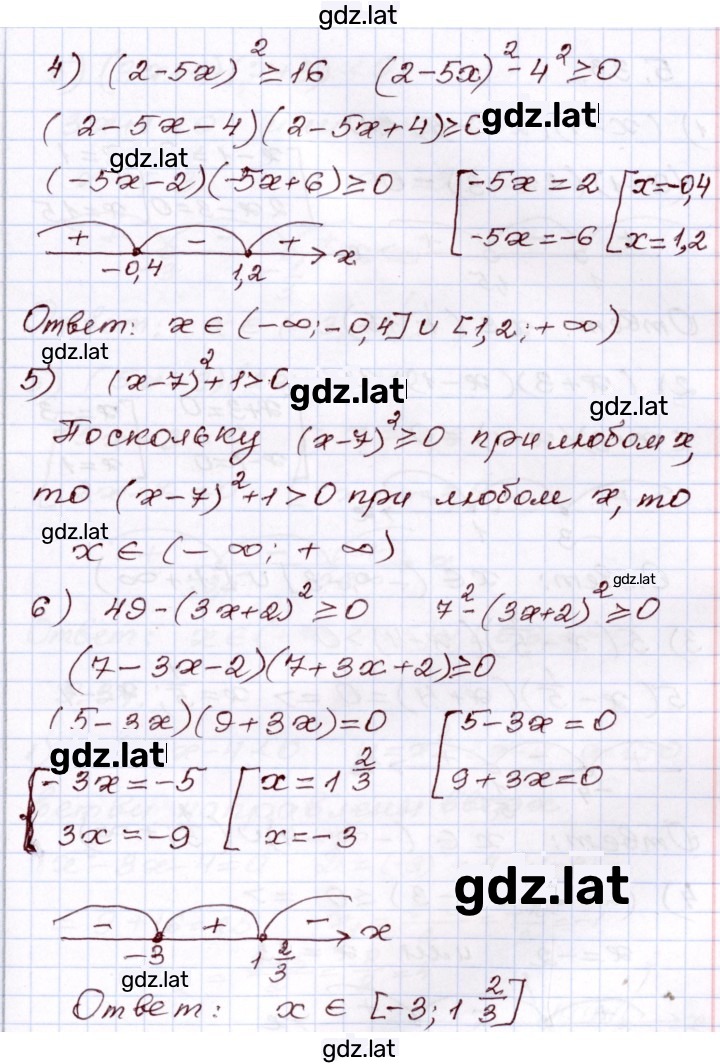 gdz.lat
4) (2-5x)² ≥ 16 (2-5x)² - 4² ≥ 0
(2-5x-4)(2-5x+4) ≥ 0 gdz.lat
gdz.lat
(-5x-2)(-5x+6) ≥ 0 [-5x = 2 [x = -0,4
-5x = -6 x = 1,2
+ - + x
-0,4 1,2
Ответ: x ∈ (-∞; -0,4] ∪ [1,2; +∞)
gdz.lat
5) (x-7)² + 1 > 0 gdz.lat gdz.lat
Поскольку (x-7)² ≥ 0 при любом x,
то (x-7)² + 1 > 0 при любом x, то
gdz.lat
x ∈ (-∞; +∞)
gdz.lat
6) 49 - (3x+2)² ≥ 0 7² - (3x+2)² ≥ 0
(7-3x-2)(7+3x+2) ≥ 0
(5-3x)(9+3x) = 0 [5-3x = 0
9+3x = 0
gdz.lat
[-3x = -5 [x = 1 2/3
3x = -9 x = -3
gdz.lat
- + - x
-3 1 2/3
gdz.lat
Ответ: x ∈ [-3; 1 2/3]
gdz.lat